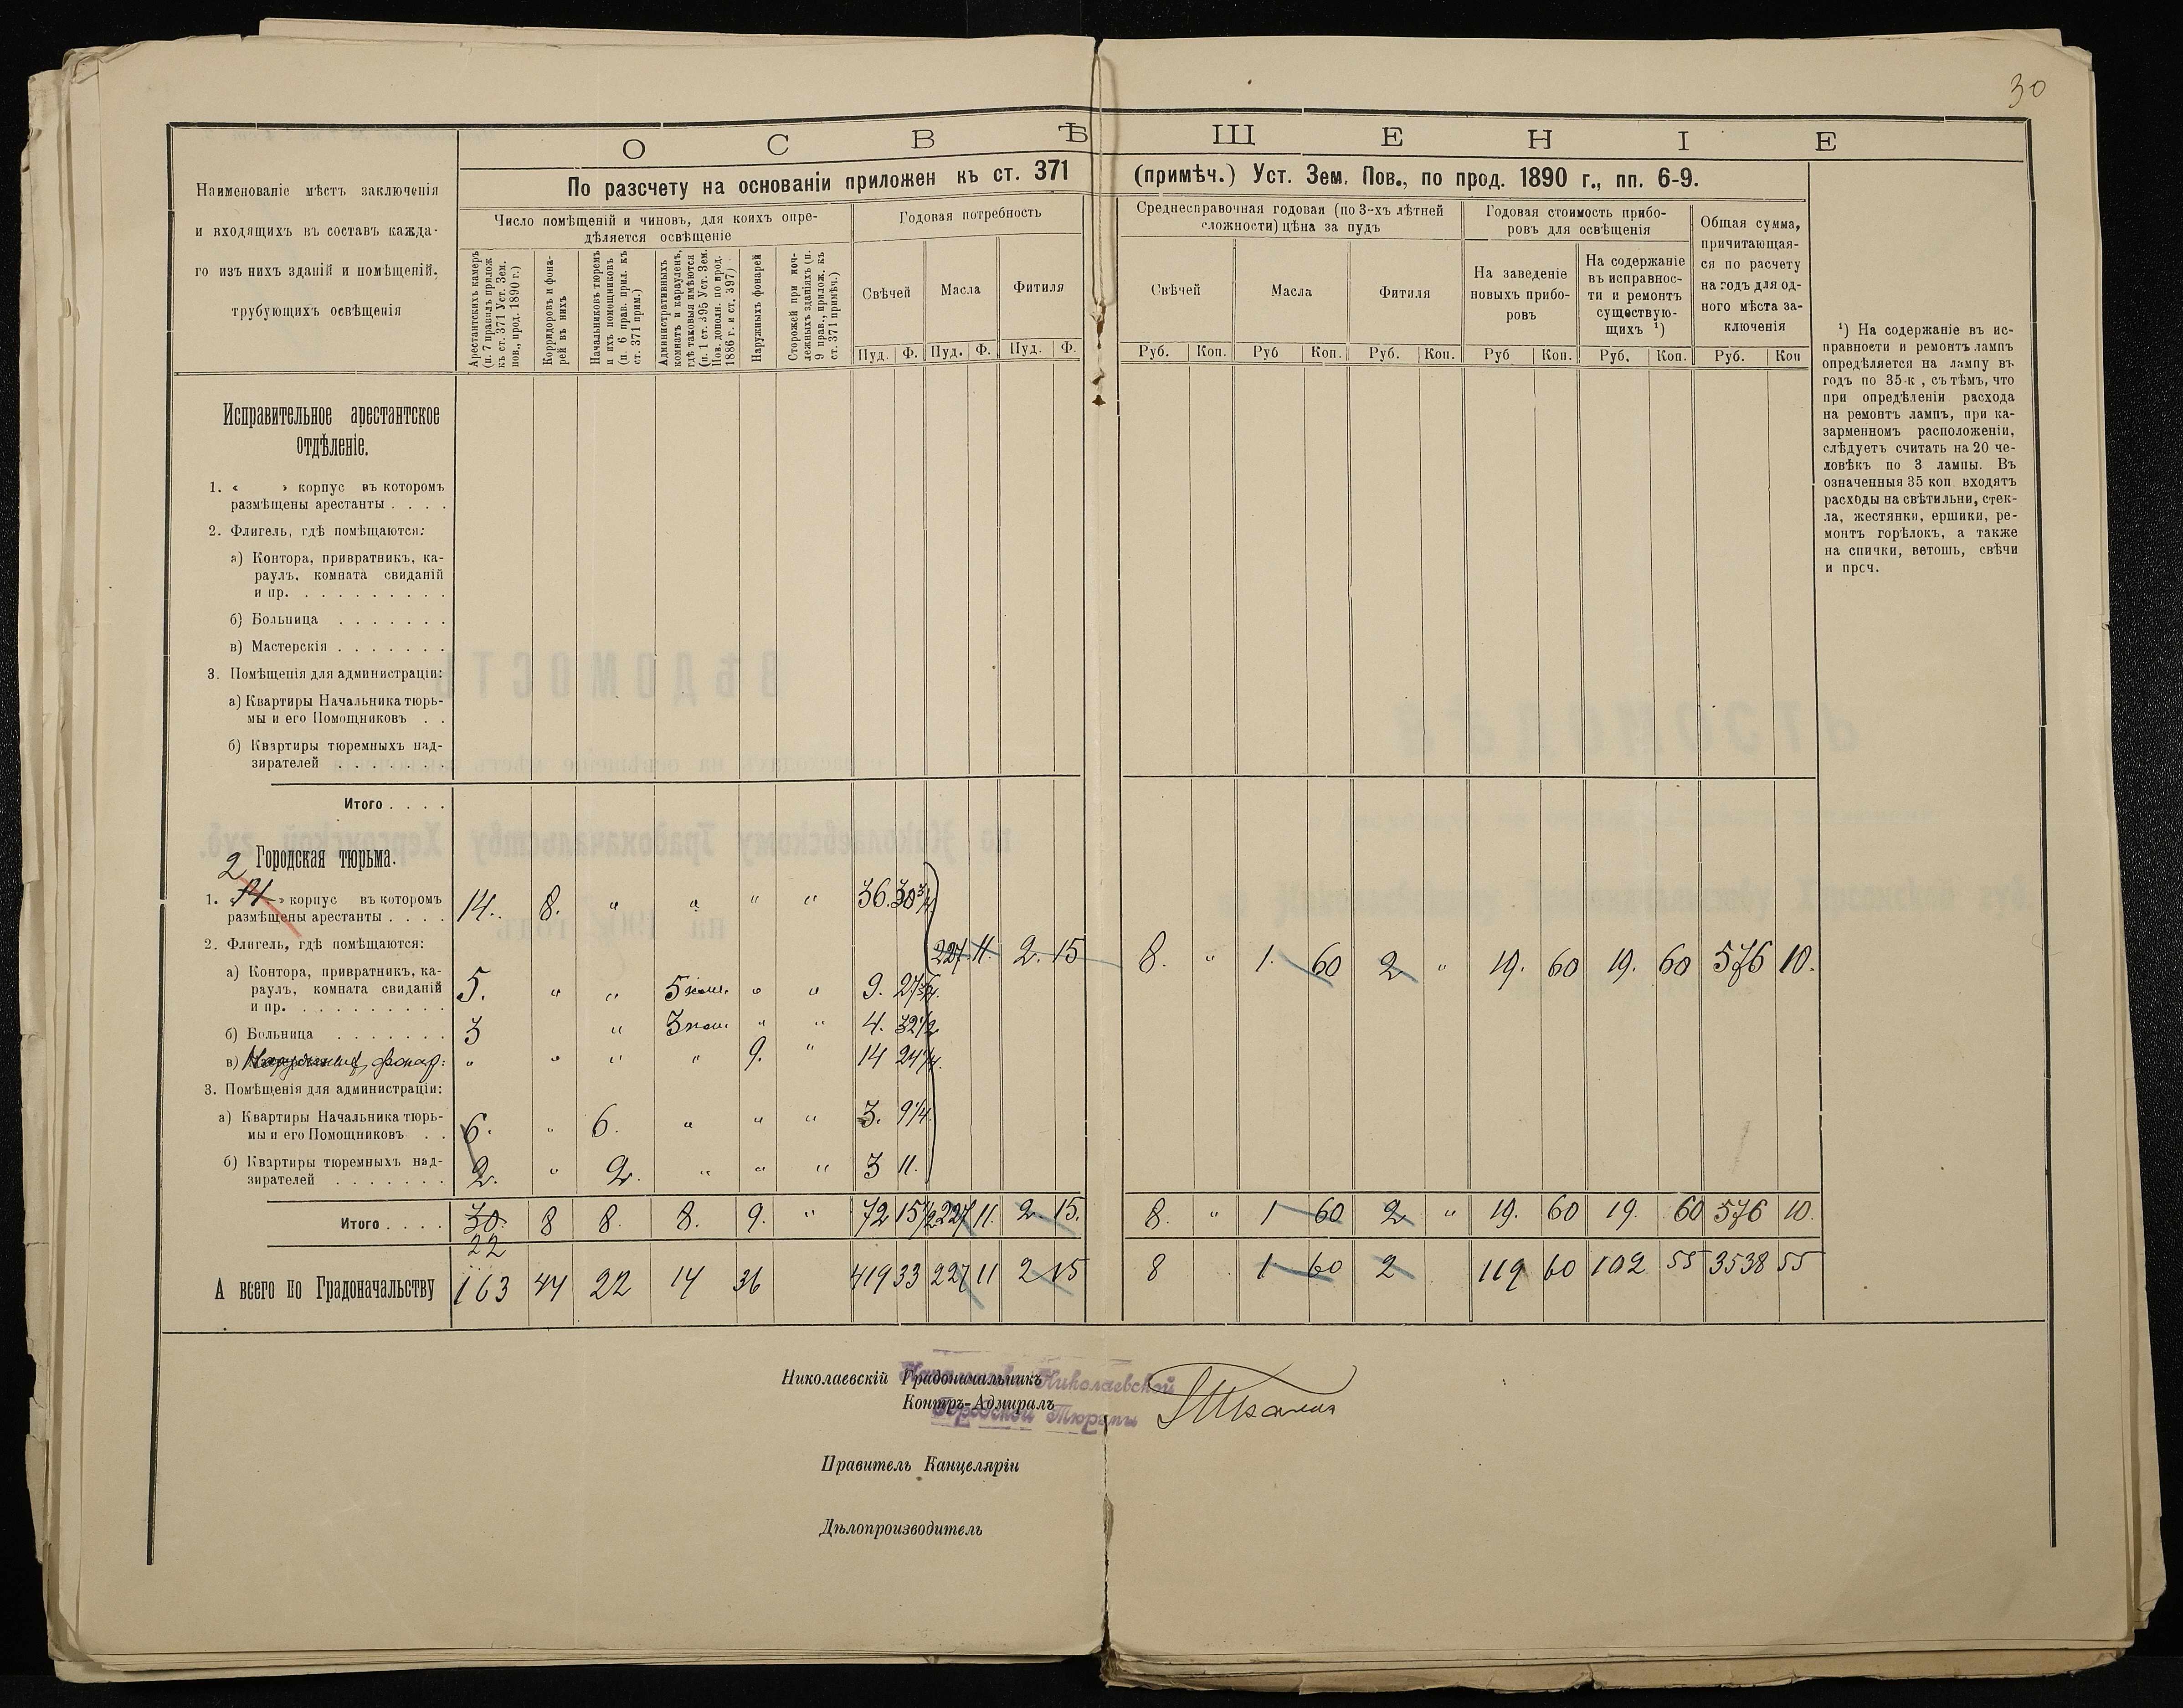 30
О С В Ѣ Щ Е Н І Е
Наименованіе мѣстъ заключенія
и входящихъ въ составъ кажда-
го изъ нихъ зданій и помѣщеній,
трубующихъ освѣщенія
По разсчету на основаніи приложен къ ст. 371 (примѣч.) Уст. Зем. Пов., по прод. 1890 г., пп. 6-9.
Число помѣщеній и чиновъ, для коихъ опре-
дѣляется освѣщеніе
Арестантскихъ камеръ
(п. 7 правилъ прилож
къ ст. 371 Уст. Зем.
пов., прод. 1890 г.)
Корридоровъ и фона-
рей въ нихъ
Начальниковъ тюремъ
и ихъ помощниковъ
(п. 6 прав. прил. къ
ст. 371 прим.)
Административныхъ
комнатъ и карауленъ,
гдѣ таковыя имѣются
(п. 1 ст. 395 Уст. Зем.
Пов. дополн. по прод.
1886 г. и ст. 397)
Наружныхъ фонарей
Сторожей при ноч-
лежныхъ зданіяхъ (п.
9 прав., прилож. къ
ст. 371 примѣч.)
Годовая потребность
Свѣчей
Масла
Фитиля
Пуд. Ф. Пуд. Ф. Пуд. Ф.
Среднесправочная годовая (по 3-хъ лѣтней
сложности) цѣна за пудъ
Свѣчей
Масла
Фитиля
Руб. Коп. Руб Коп. Руб. Коп.
Годовая стоимость прибо-
ровъ для освѣщенія
На заведеніе
новыхъ прибо-
ровъ
На содержаніе
въ исправнос-
ти и ремонтъ
существую-
щихъ ¹)
Руб Коп. Руб. Коп.
Общая сумма,
причитающая-
ся по расчету
на годъ для од-
ного мѣста за-
ключенія
Руб. Коп
¹) На содержаніе въ ис-
правности и ремонтъ лампъ
опредѣляется на лампу въ
годъ по 35 к , съ тѣмъ, что
при опредѣленіи расхода
на ремонтъ лампъ, при ка-
зарменномъ расположеніи,
слѣдуетъ считать на 20 че-
ловѣкъ по 3 лампы. Въ
означенныя 35 коп входятъ
расходы на свѣтильни, стек-
ла, жестянки, ершики, ре-
монтъ горѣлокъ, а также
на спички, ветошь, свѣчи
и проч.
Исправительное арестантское
отдѣленіе.
1. « » корпус въ которомъ
размѣщены арестанты . . . .
2. Флигель, гдѣ помѣщаются:
а) Контора, привратникъ, ка-
раулъ, комната свиданій
и пр. . . . . . . . . .
б) Больница . . . . . . .
в) Мастерскія . . . . . . .
3. Помѣщенія для администраціи:
а) Квартиры Начальника тюрь-
мы и его Помощниковъ . .
б) Квартиры тюремныхъ над-
зирателей . . . . . . .
Итого . . . .
Городская тюрьма.
2
1. « » корпус въ которомъ
размѣщены арестанты . . . . 14. 8. " " " " 36. 30 3/4
2. Флигель, гдѣ помѣщаются:
227 11. 2. 15 8. " 1. 60 2 " 19. 60 19. 60 576 10.
а) Контора, привратникъ, ка-
раулъ, комната свиданій
и пр. . . . . . . . . . 5. " " 5 ком. " " 9. 27 3/4.
б) Больница . . . . . . . 3 " 3 ком " " 4. 32 1/2
в) фонар: " " " " 9. " 14 24 1/4.
3. Помѣщенія для администраціи:
а) Квартиры Начальника тюрь-
мы и его Помощниковъ . . 6. " 6. " " " 3. 9 1/4.
б) Квартиры тюремныхъ над-
зирателей . . . . . . . 2. " 2. " " " 3 11.
Итого . . . . 30. 8 8. 8. 9. " 72 15 1/2 227 11. 2. 15. 8. " 1 60 2 " 19. 60 19. 60 576 10.
22
А всего по Градоначальству 163 44 22 14 36 419 33 227 11 2 15 8 1 60 2 119 60 102 55 3538 55
Николаевскій Градоначальникъ
Контръ-Адмиралъ
Начальникъ Николаевской
Городской Тюрьмы
Правитель Канцеляріи
Дѣлопроизводитель